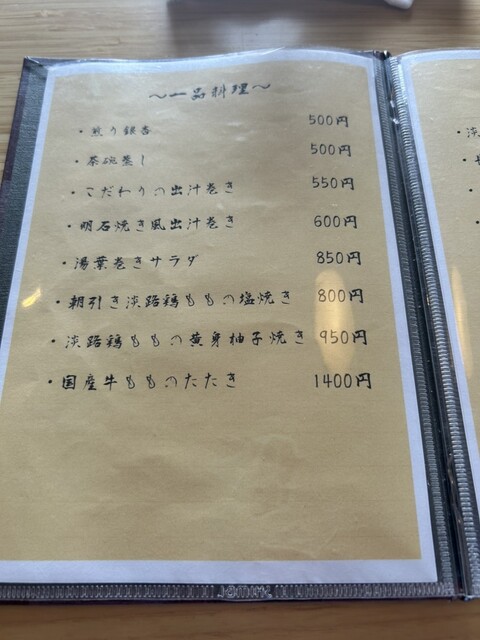 ～一品料理～
・煎り銀杏 500円
・茶碗蒸し 500円
・こだわりの出汁巻き 550円
・明石焼き風出汁巻き 600円
・湯葉巻きサラダ 850円
・朝引き淡路鶏ももの塩焼き 800円
・淡路鶏ももの黄身柚子焼き 950円
・国産牛もものたたき 1400円
・淡